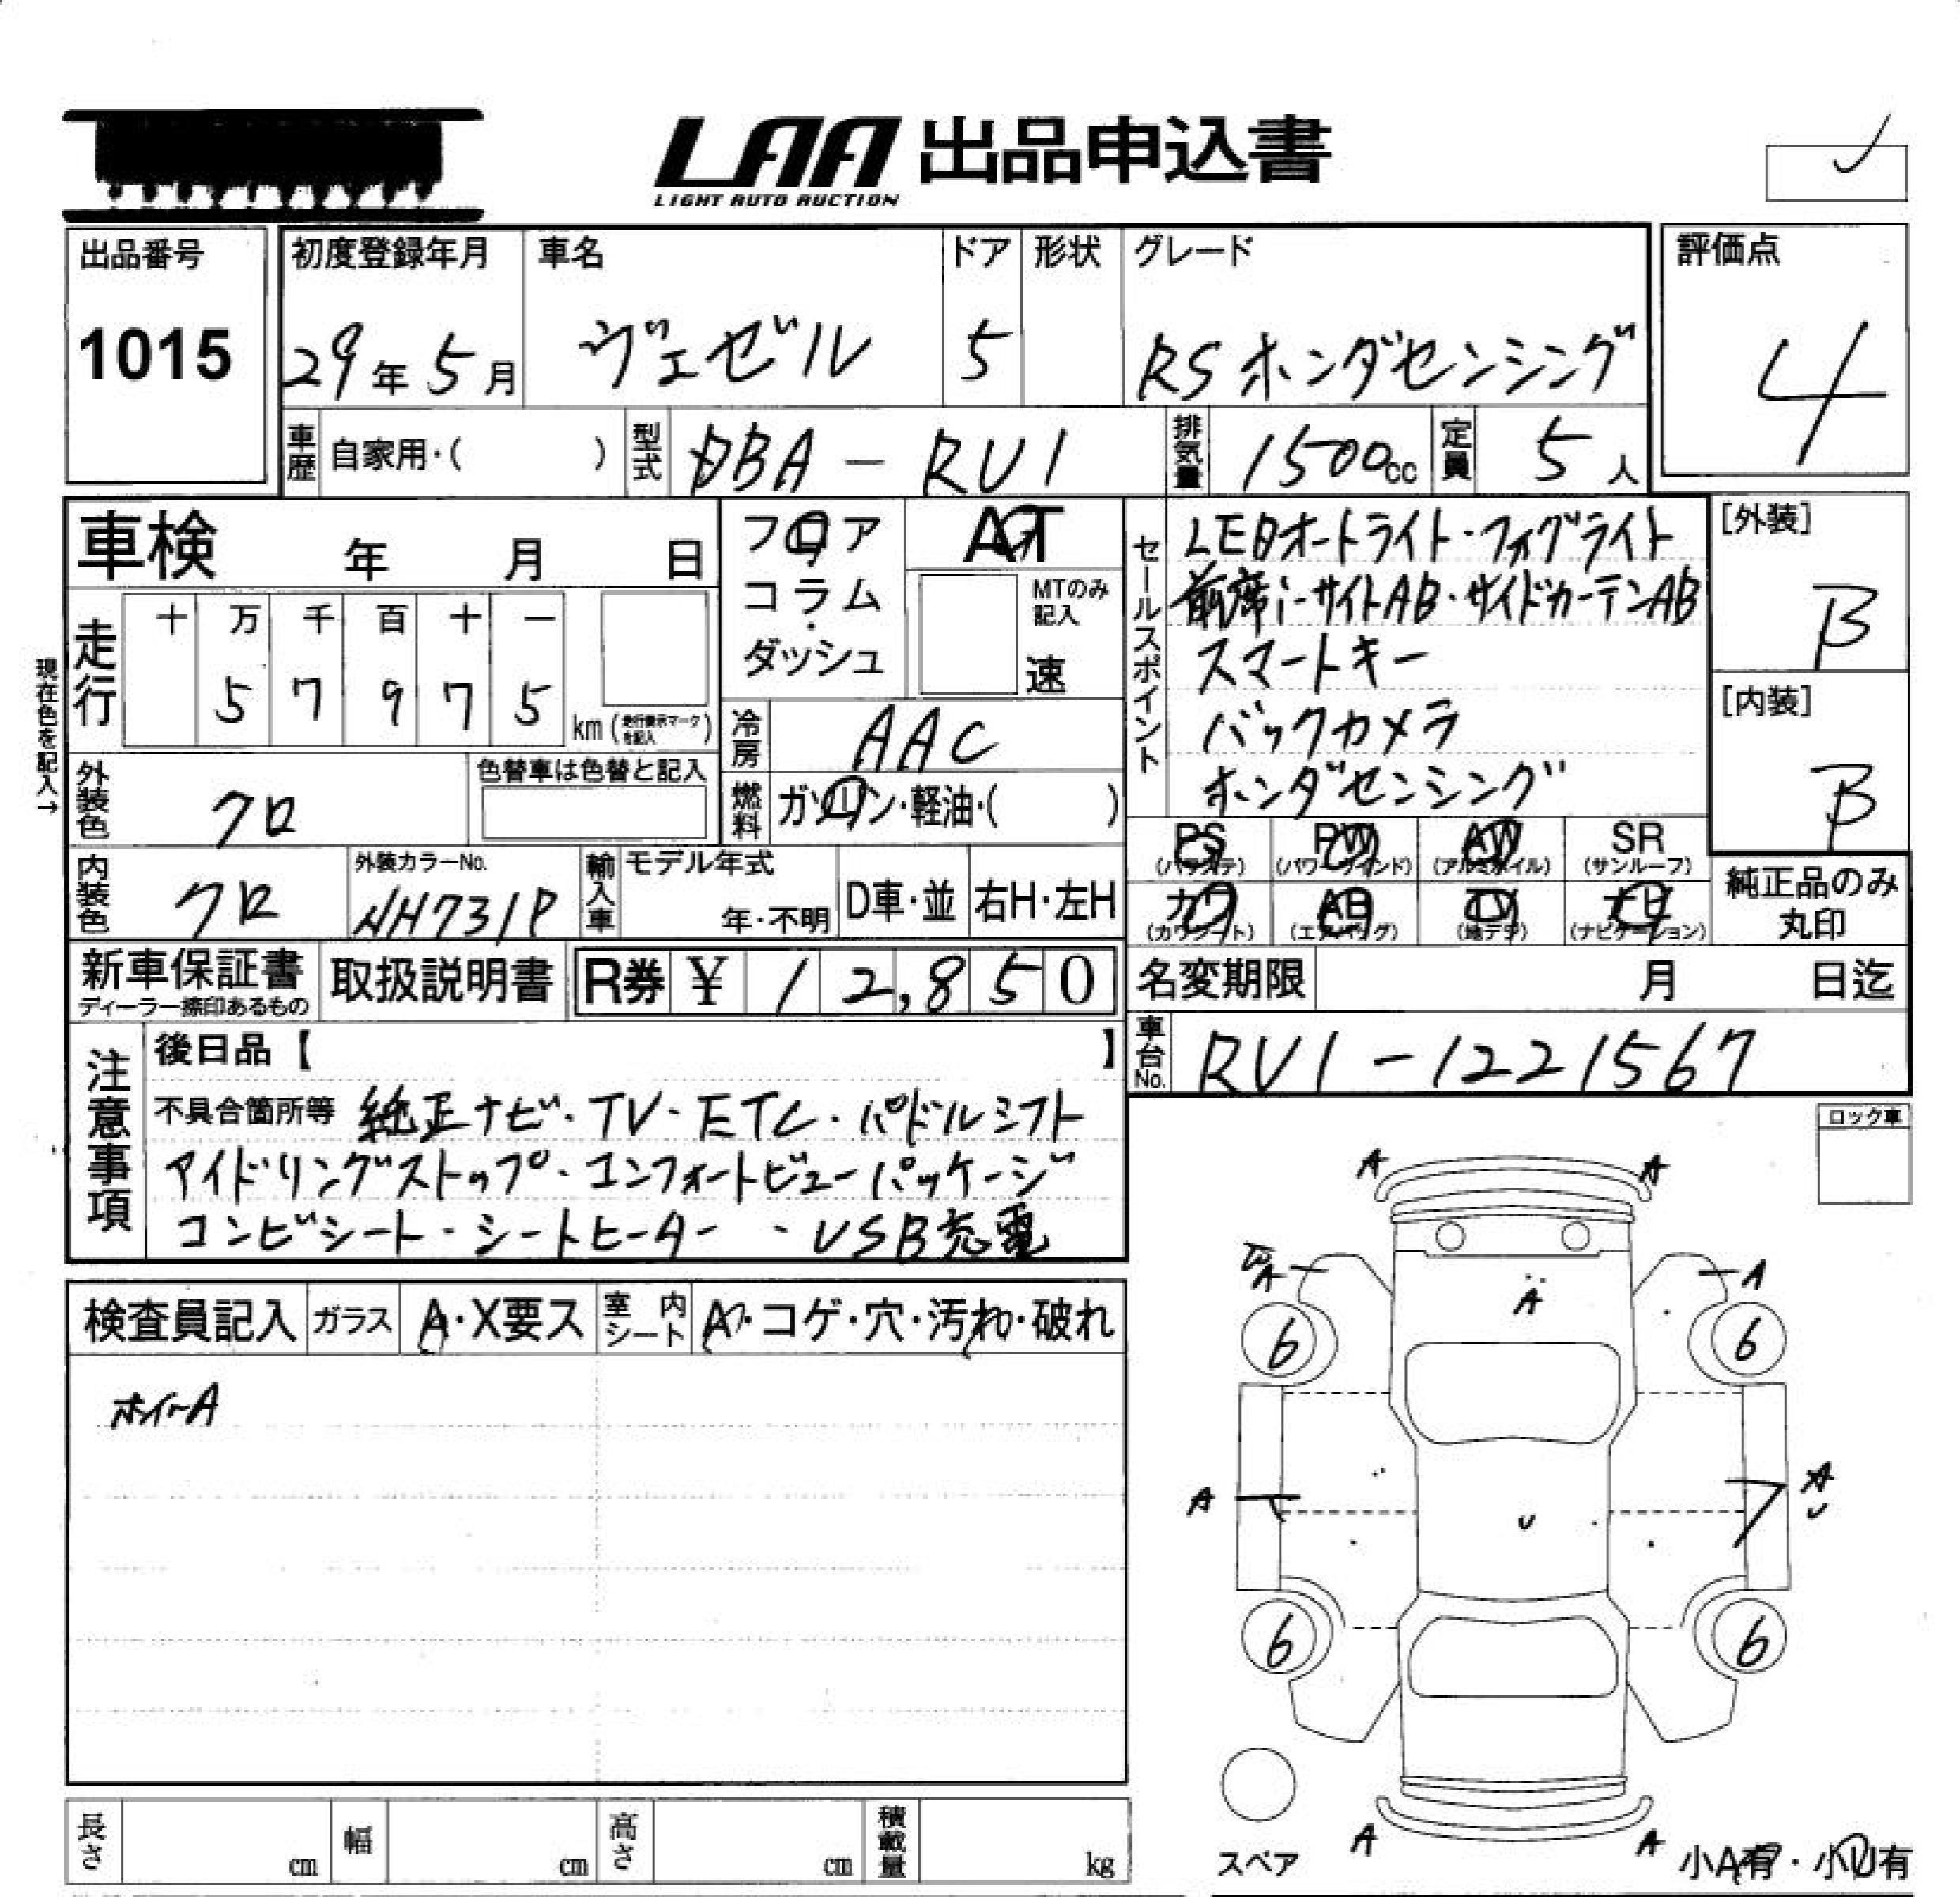 LAA 出品申込書
LIGHT AUTO AUCTION
出品番号
1015
初度登録年月
29年 5月
車名
ヴェゼル
ドア
5
形状
グレード
RS ホンダセンシング
評価点
4
車歴 自家用・( )
型式 DBA - RU1
排気量 1500cc
定員 5人
車検 年 月 日
フロア
コラム
・
ダッシュ
AT
MTのみ
記入
速
セールスポイント
LEDオートライト・フォグライト
前席i-サイドAB・サイドカーテンAB
スマートキー
バックカメラ
ホンダセンシング
[外装]
B
[内装]
B
現在色を記入→
走行
十 万 千 百 十 一
5 7 9 7 5
km (走行表示マークを記入)
冷房 AAC
外装色 クロ
色替車は色替と記入
燃料 ガソリン・軽油・( )
内装色 クロ
外装カラーNo.
NH731P
輸入車
モデル年式
年・不明
D車・並
右H・左H
PS (パワステ)
PW (パワーウインド)
AW (アルミホイル)
SR (サンルーフ)
カワ (カワシート)
AB (エアバッグ)
TV (地デジ)
ナビ (ナビゲーション)
純正品のみ
丸印
新車保証書
ディーラー捺印あるもの
取扱説明書
R券 ¥ 12,850
名変期限 月 日迄
車台No. RU1-1221567
注意事項
後日品【 】
不具合箇所等 純正ナビ・TV・ETC・パドルシフト
アイドリングストップ・コンフォートビューパッケージ
コンビシート・シートヒーター・USB充電
ロック車
検査員記入
ガラス A・X要ス
室内シート A・コゲ・穴・汚れ・破れ
ホイールA
A A
A A
A
6 6
A A
U U
6 6
スペア
A A
小A有・小U有
長さ cm
幅 cm
高さ cm
積載量 kg